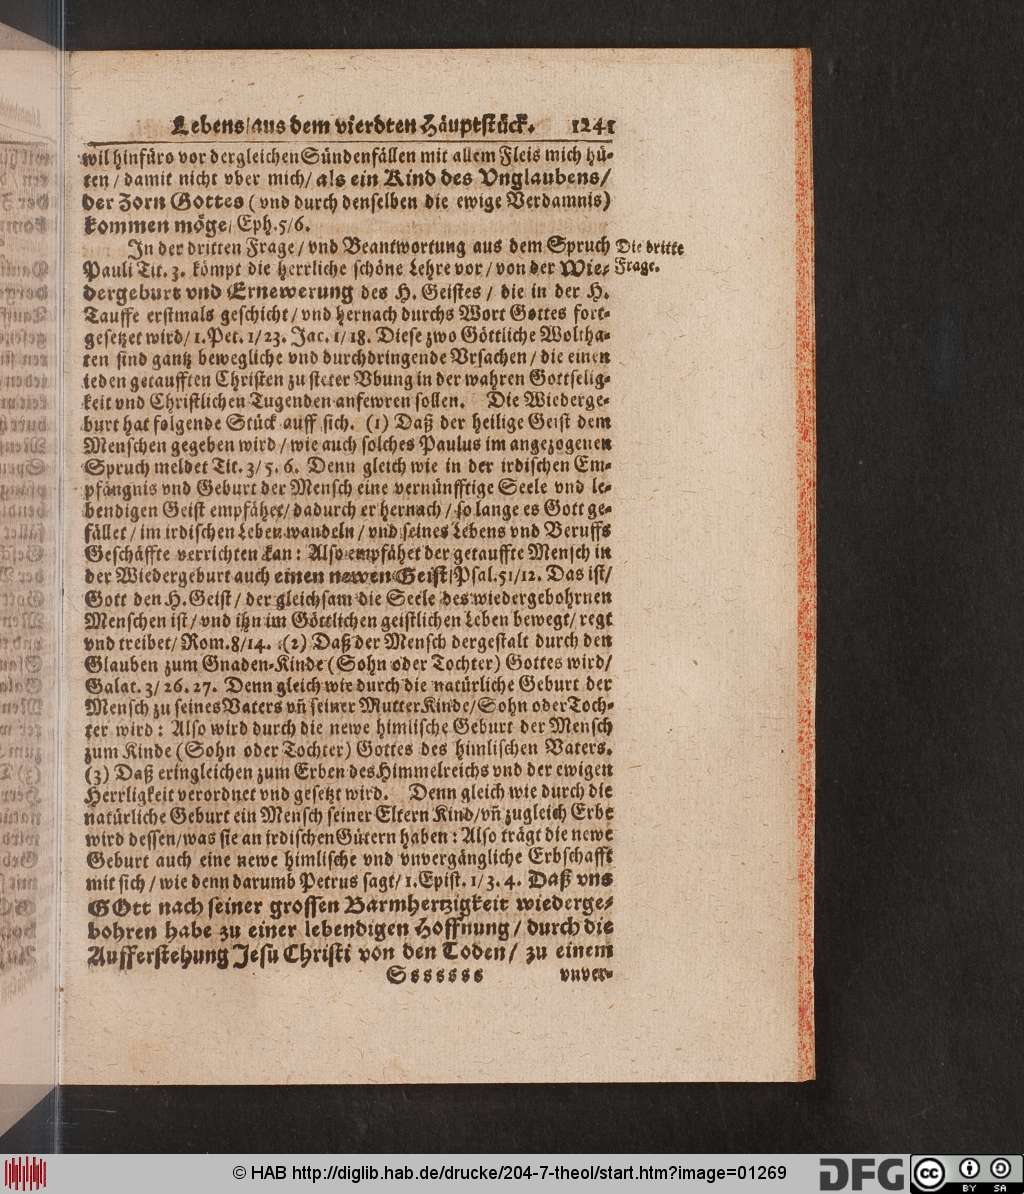 Lebens/aus dem vierdten Häuptstück. 1241
wil hinfüro vor dergleichen Sündenfällen mit allem Fleis mich hü-
ten / damit nicht vber mich / als ein Kind des Vnglaubens /
der Zorn Gottes (vnd durch denselben die ewige Verdamnis)
kommen möge / Eph. 5/6.
In der dritten Frage / vnd Beantwortung aus dem Spruch
Die dritte
Frage.
Pauli Tit. 3. kömpt die herrliche schöne Lehre vor / von der Wie-
dergeburt vnd Ernewerung des H. Geistes / die in der H.
Tauffe erstmals geschicht / vnd hernach durchs Wort Gottes fort-
gesetzet wird / 1. Pet. 1/23. Jac. 1/18. Diese zwo Göttliche Woltha-
ten sind gantz bewegliche vnd durchdringende Vrsachen / die einen
ieden getaufften Christen zu steter Vbung in der wahren Gottselig-
keit vnd Christlichen Tugenden anfewren sollen. Die Wiederge-
burt hat folgende Stück auff sich. (1) Daß der heilige Geist dem
Menschen gegeben wird / wie auch solches Paulus im angezogenen
Spruch meldet Tit. 3/5.6. Denn gleich wie in der irdischen Em-
pfängnis vnd Geburt der Mensch eine vernünfftige Seele vnd le-
bendigen Geist empfähet / dadurch er hernach / so lange es Gott ge-
fället / im irdischen Leben wandeln / vnd seines Lebens vnd Beruffs
Geschäffte verrichten kan : Also empfähet der getauffte Mensch in
der Wiedergeburt auch einen newen Geist / Psal. 51/12. Das ist /
Gott den H. Geist / der gleichsam die Seele des wiedergebohrnen
Menschen ist / vnd ihn im Göttlichen geistlichen Leben bewegt / regt
vnd treibet / Rom. 8/14. (2) Daß der Mensch dergestalt durch den
Glauben zum Gnaden-Kinde (Sohn oder Tochter) Gottes wird /
Galat. 3/26.27. Denn gleich wie durch die natürliche Geburt der
Mensch zu seines Vaters vñ seiner Mutter Kinde / Sohn oder Toch-
ter wird : Also wird durch die newe himlische Geburt der Mensch
zum Kinde (Sohn oder Tochter) Gottes des himlischen Vaters.
(3) Daß er ingleichen zum Erben des Himmelreichs vnd der ewigen
Herrligkeit verordnet vnd gesetzt wird. Denn gleich wie durch die
natürliche Geburt ein Mensch seiner Eltern Kind / vñ zugleich Erbe
wird dessen / was sie an irdischen Gütern haben : Also trägt die newe
Geburt auch eine newe himlische vnd vnvergängliche Erbschafft
mit sich / wie denn darumb Petrus sagt / 1. Epist. 1/3.4. Daß vns
GOtt nach seiner grossen Barmhertzigkeit wiederge-
bohren habe zu einer lebendigen Hoffnung / durch die
Aufferstehung Jesu Christi von den Toden / zu einem
Sssssss vnver-
© HAB http://diglib.hab.de/drucke/204-7-theol/start.htm?image=01269
DFG
cc
BY SA